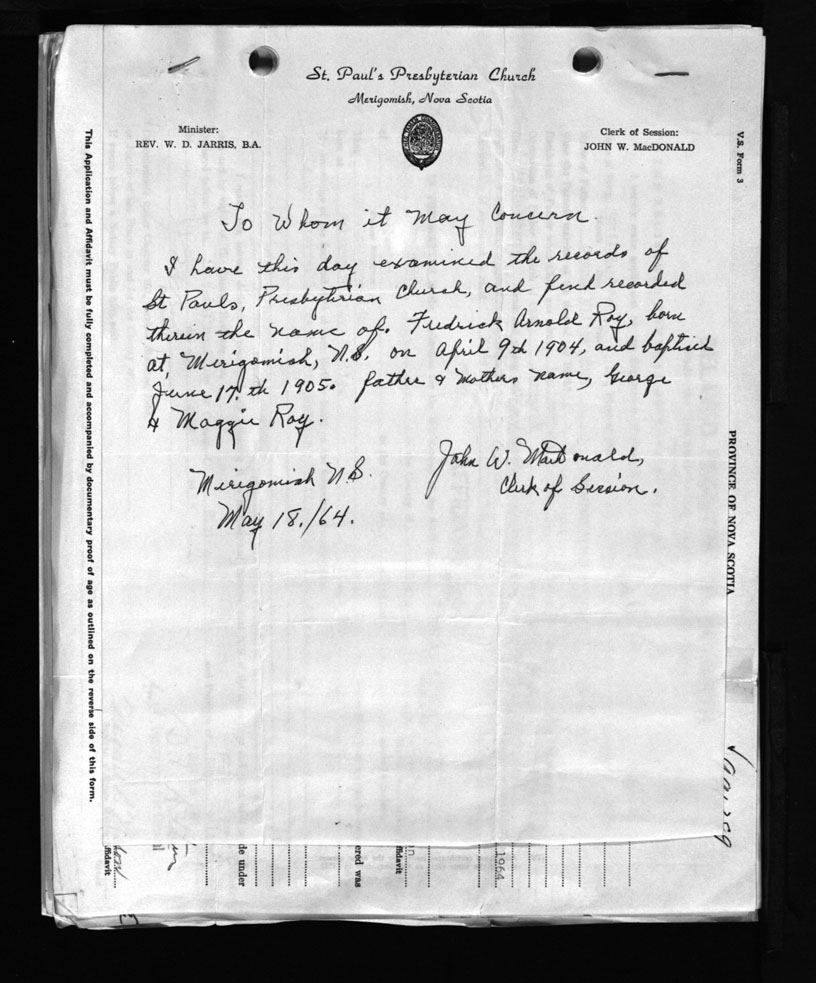 St. Paul's Presbyterian Church
Merigomish, Nova Scotia
Minister:
REV. W. D. JARRIS, B.A.
Clerk of Session:
JOHN W. MacDONALD
To Whom it May Concern.
I have this day examined the records of
St Pauls, Presbyterian Church, and find recorded
therein the name of. Fredrick Arnold Roy, born
at, Merigomish, N.S. on April 9th 1904, and baptised
June 17.th 1905. father & Mothers name, George
& Maggie Roy.
Merigomish N.S.
May 18./64.
John W. MacDonald,
Clerk of Session.
This Application and Affidavit must be fully completed and accompanied by documentary proof of age as outlined on the reverse side of this form.
V.S. Form 3
PROVINCE OF NOVA SCOTIA
ffidavit
de under
ered was
ffidavit
1964